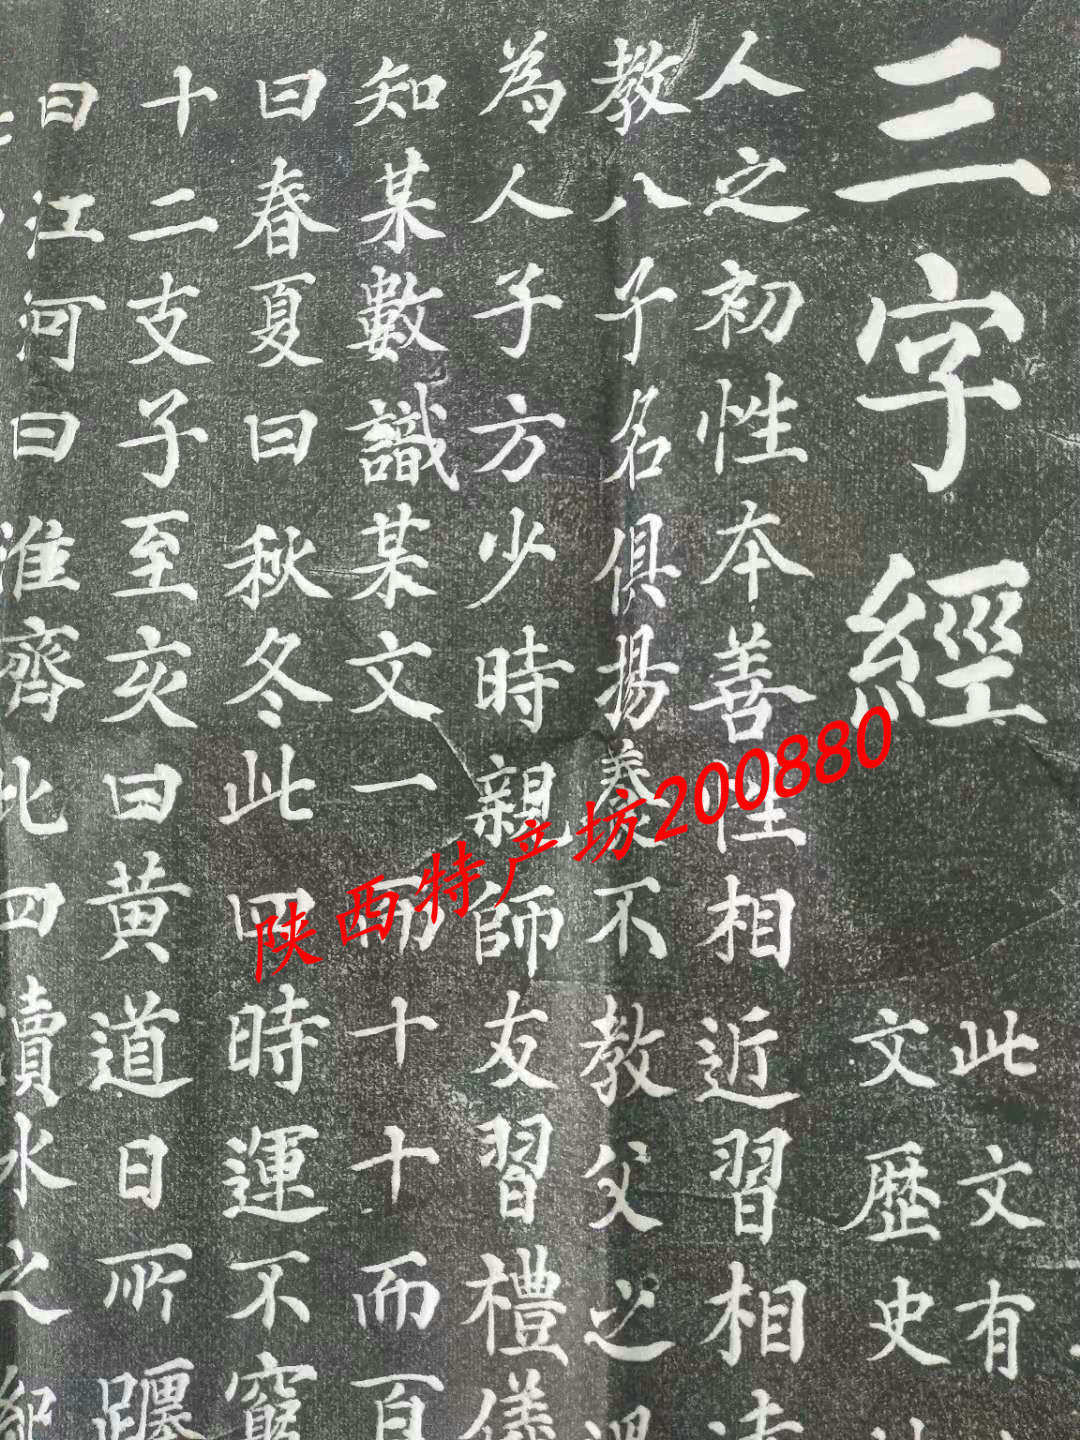 三字經
此文有
文歷史
人之初性本善性相近習相遠
教八子名俱揚養不教父之過
為人子方少時親師友習禮儀
知某數識某文一而十十而百
曰春夏曰秋冬此四時運不窮
十二支子至亥曰黃道日所躔
曰江河曰淮濟此四瀆水之紀
陕西特产坊200880